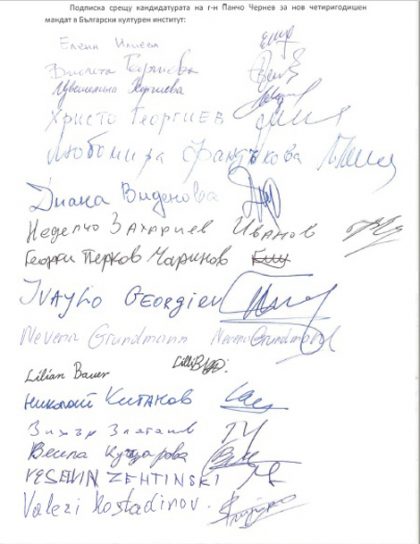 Подписка срещу кандидатурата на г-н Панчо Чернев за нов четиригодишен
мандат в Български културен институт:
Елена Илиева
Виолета
Цветелина Георгиева
Христо Георгиев
Любомира
Диана Виденова
Неделчо Захариев Иванов
Георги Перков Чаринов
IVAYLO GEORGIEV
Nevena Grundmann Nevena Grundmann
Lilian Bauer
Николай Китанов
Златанов
Весела
VESELIN ZEHTINSKI
Valeri Kostadinov